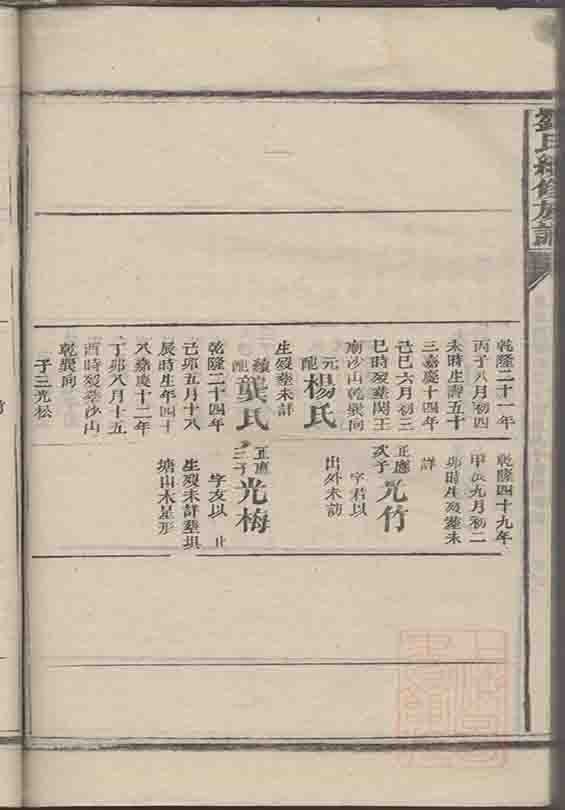 劉氏續修族譜
乾隆二十一年
丙子八月初四
未時生壽五十
三嘉慶十四年
己巳六月初三
巳時歿葬關王
廟沙山乾巽向
元配楊氏
生歿葬未詳
續配龔氏
乾隆二十四年
己卯五月十八
辰時生年四十
八嘉慶十二年
丁卯八月十五
酉時歿葬沙山
乾巽向
子三光松
乾隆四十九年
甲辰九月初二
卯時生歿葬未
詳
正應次子光竹
字君以
出外未訪
正應三子光梅
字友以 止
生歿未詳葬垻
塘山木星形